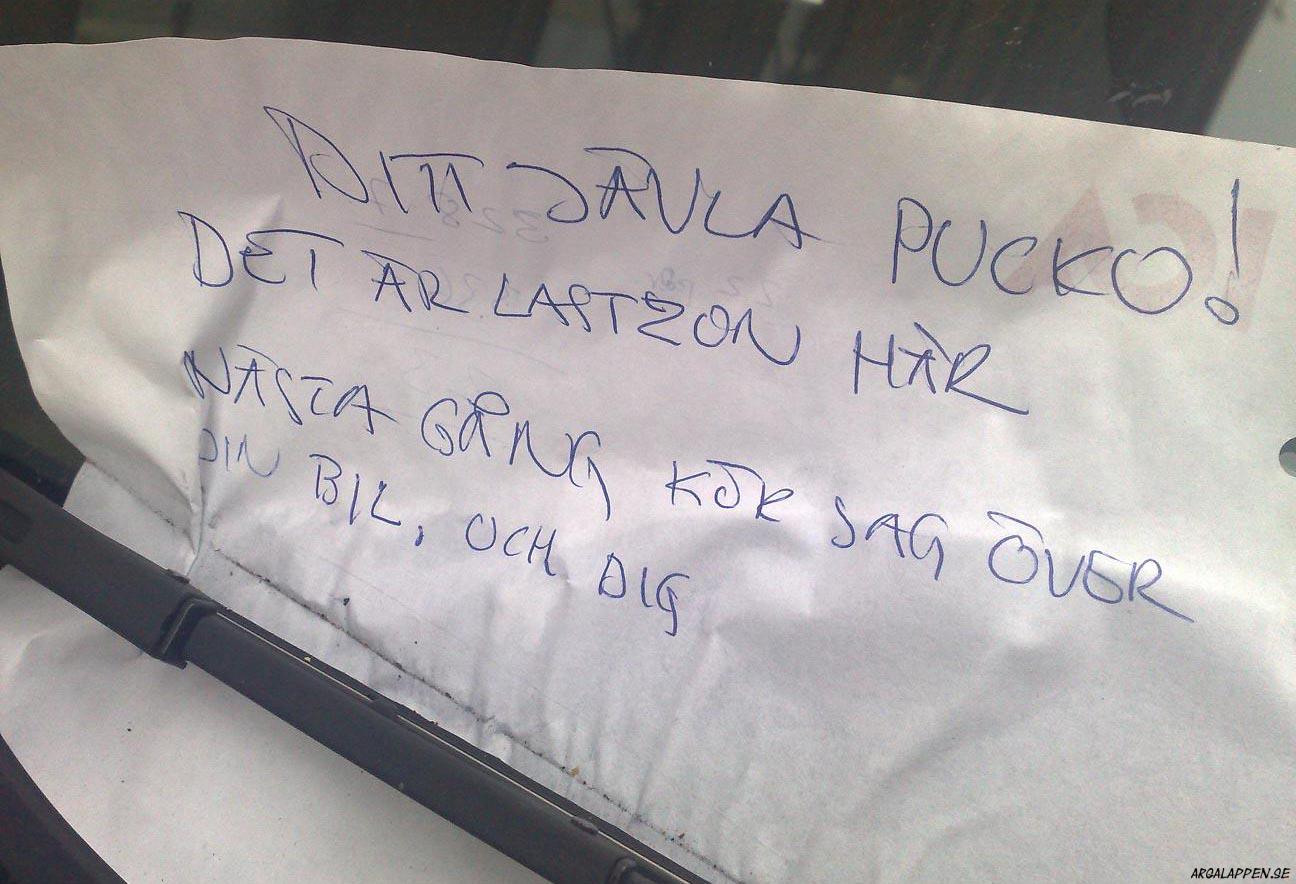 DITT JÄVLA PUCKO!
DET ÄR LASTZON HÄR
NÄSTA GÅNG KÖR JAG ÖVER
DIN BIL, OCH DIG
ICA
ARGALAPPEN.SE